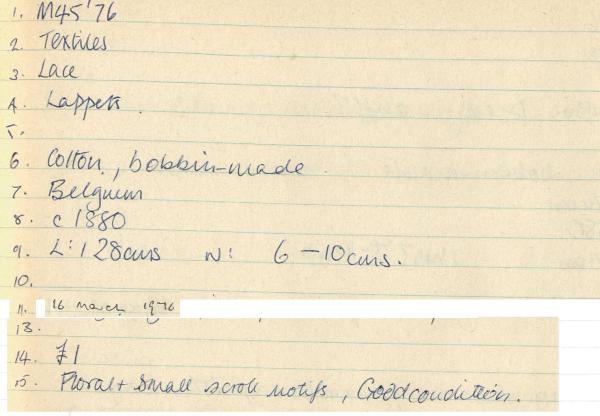 1. M45'76
2. Textiles
3. Lace
4. Lappets.
5.
6. Cotton, bobbin-made.
7. Belgium
8. c 1880
9. L: 128cms W: 6-10cms.
10.
11. 16 March 1976
13.
14. £1
15. Floral + small scroll motifs, Good condition.